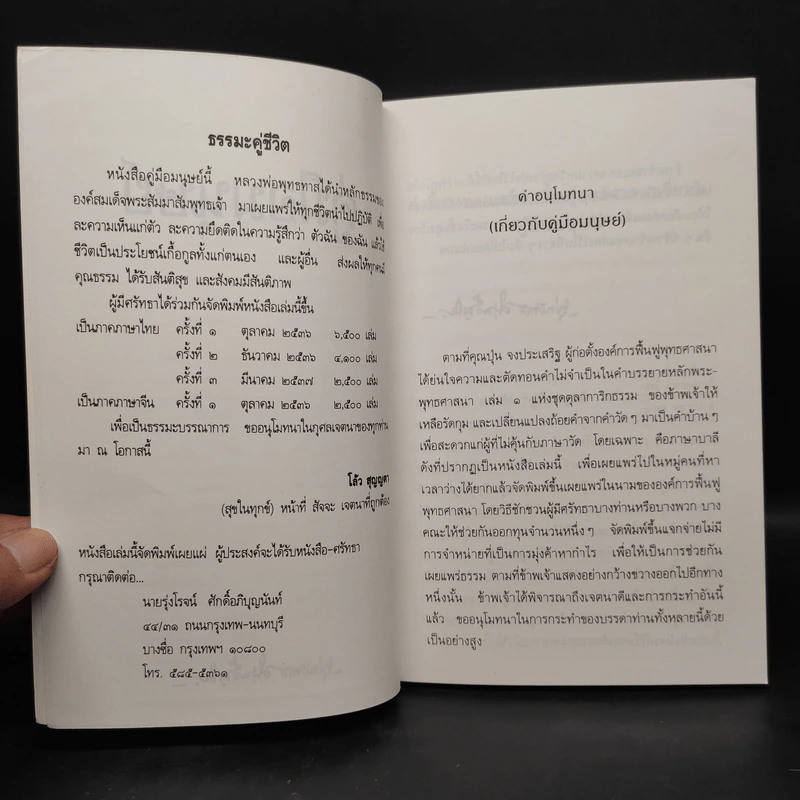 ธรรมะคู่ชีวิต
หนังสือคู่มือมนุษย์นี้ หลวงพ่อพุทธทาสได้นำหลักธรรมของ
องค์สมเด็จพระสัมมาสัมพุทธเจ้า มาเผยแพร่ให้ทุกชีวิตนำไปปฏิบัติ เพื่อ
ละความเห็นแก่ตัว ละความยึดติดในความรู้สึกว่า ตัวฉัน ของฉัน แล้วใช้
ชีวิตเป็นประโยชน์เกื้อกูลทั้งแก่ตนเอง และผู้อื่น ส่งผลให้ทุกคนมี
คุณธรรม ได้รับสันติสุข และสังคมมีสันติภาพ
ผู้มีศรัทธาได้ร่วมกันจัดพิมพ์หนังสือเล่มนี้ขึ้น
เป็นภาคภาษาไทย ครั้งที่ ๑ ตุลาคม ๒๕๓๖ ๖,๕๐๐ เล่ม
ครั้งที่ ๒ ธันวาคม ๒๕๓๖ ๔,๑๐๐ เล่ม
ครั้งที่ ๓ มีนาคม ๒๕๓๗ ๒,๕๐๐ เล่ม
เป็นภาคภาษาจีน ครั้งที่ ๑ ตุลาคม ๒๕๓๖ ๒,๕๐๐ เล่ม
เพื่อเป็นธรรมะบรรณาการ ขออนุโมทนาในกุศลเจตนาของทุกท่าน
มา ณ โอกาสนี้
โล้ว สุญญตา
(สุขในทุกข์) หน้าที่ สัจจะ เจตนาที่ถูกต้อง
หนังสือเล่มนี้จัดพิมพ์เผยแผ่ ผู้ประสงค์จะได้รับหนังสือ-ศรัทธา
กรุณาติดต่อ...
นายรุ่งโรจน์ ศักดิ์อภิบุญนันท์
๔๔/๓๑ ถนนกรุงเทพ-นนทบุรี
บางซื่อ กรุงเทพฯ ๑๐๘๐๐
โทร. ๕๘๕-๕๓๖๑
คำอนุโมทนา
(เกี่ยวกับคู่มือมนุษย์)
ตามที่คุณปุ่น จงประเสริฐ ผู้ก่อตั้งองค์การฟื้นฟูพุทธศาสนา
ได้ย่นใจความและตัดทอนคำไม่จำเป็นในคำบรรยายหลักพระ-
พุทธศาสนา เล่ม ๑ แห่งชุดตุลาการิกธรรม ของข้าพเจ้าให้
เหลือรัดกุม และเปลี่ยนแปลงถ้อยคำจากคำวัด ๆ มาเป็นคำบ้าน ๆ
เพื่อสะดวกแก่ผู้ที่ไม่คุ้นกับภาษาวัด โดยเฉพาะ คือภาษาบาลี
ดังที่ปรากฏเป็นหนังสือเล่มนี้ เพื่อเผยแพร่ไปในหมู่คนที่หา
เวลาว่างได้ยากแล้วจัดพิมพ์ขึ้นเผยแพร่ในนามขององค์การฟื้นฟู
พุทธศาสนา โดยวิธีชักชวนผู้มีศรัทธาบางท่านหรือบางพวก บาง
คณะให้ช่วยกันออกทุนจำนวนหนึ่ง ๆ จัดพิมพ์ขึ้นแจกจ่ายไม่มี
การจำหน่ายที่เป็นการมุ่งค้าหากำไร เพื่อให้เป็นการช่วยกัน
เผยแพร่ธรรม ตามที่ข้าพเจ้าแสดงอย่างกว้างขวางออกไปอีกทาง
หนึ่งนั้น ข้าพเจ้าได้พิจารณาถึงเจตนาดีและการกระทำอันนี้
แล้ว ขออนุโมทนาในการกระทำของบรรดาท่านทั้งหลายนี้ด้วย
เป็นอย่างสูง